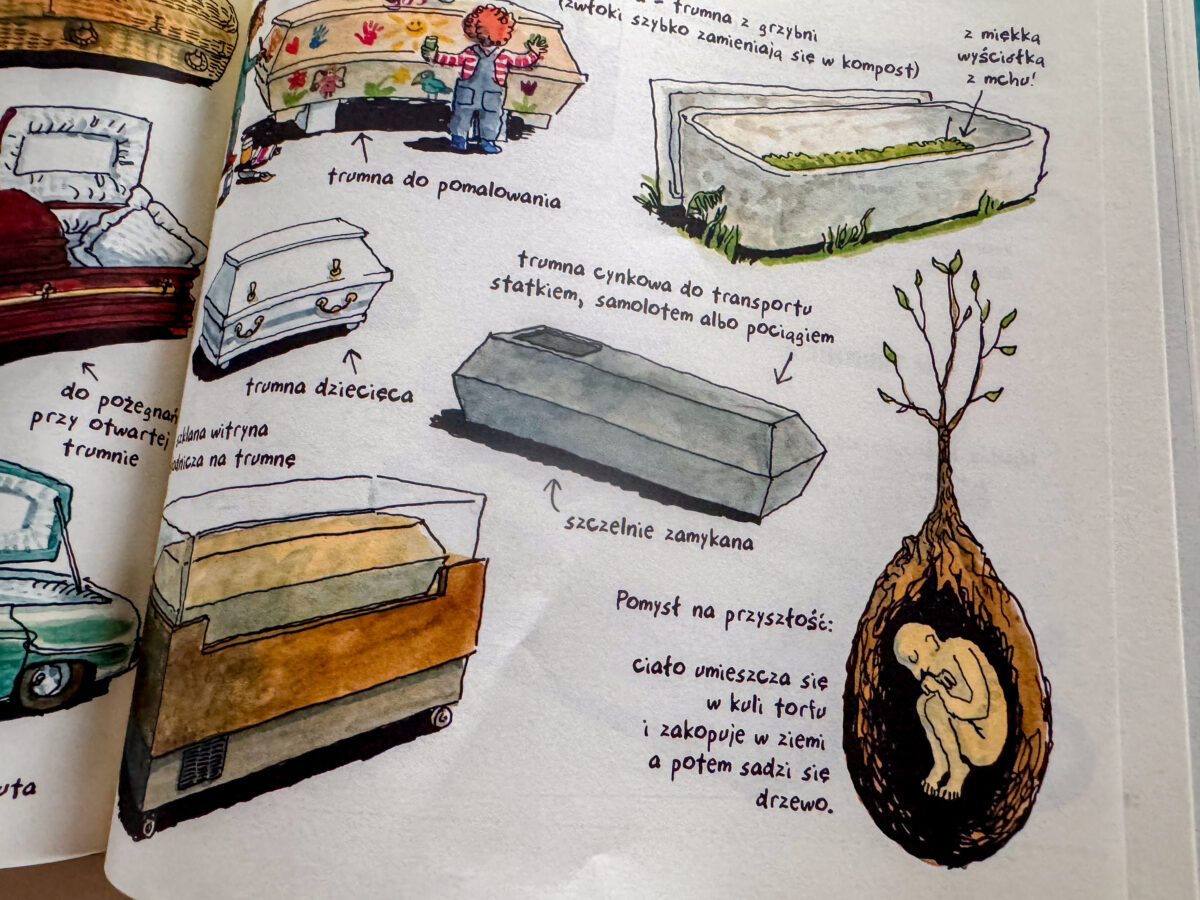 trumna z grzybni
(zwłoki szybko zamieniają się w kompost)
z miękką
wyściółką
z mchu!
trumna do pomalowania
trumna cynkowa do transportu
statkiem, samolotem albo pociągiem
trumna dziecięca
do pożegnań
przy otwartej
trumnie
witryna
na trumnę
szczelnie zamykana
Pomysł na przyszłość:
ciało umieszcza się
w kuli torfu
i zakopuje w ziemi
a potem sadzi się
drzewo.